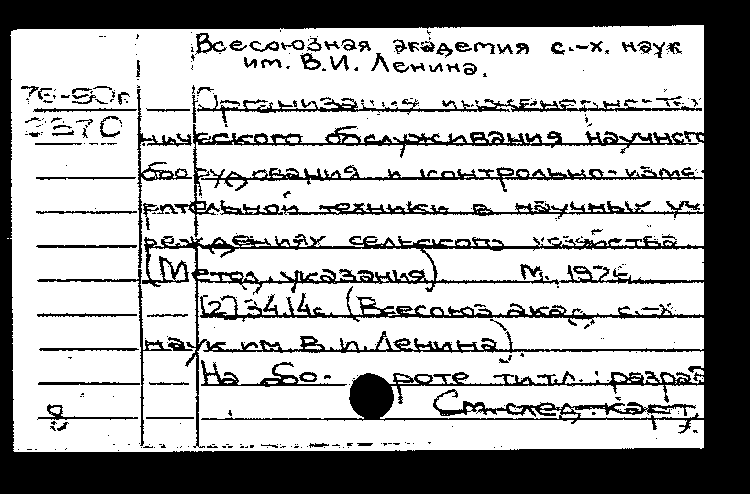 Всесоюзная академия с.-х. наук
им. В.И. Ленина.
76-90г Организация инженерно-тех
3370 нического обслуживания научного
оборудования и контрольно-изме-
рительной техники в научных уч-
реждениях сельского хозяйства.
(Метод. указания). М., 1976.
[2], 34.14с. (Всесоюз. акад. с.-х.
наук им. В.И. Ленина).
На обо- роте тит.л.: разраб
См. след. карт.